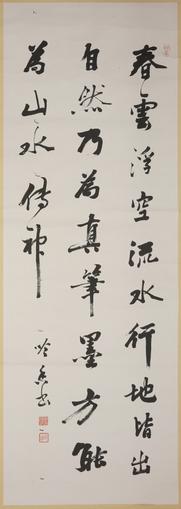 春雲浮空流水行地皆出
自然乃為真筆墨方能
為山水傳神